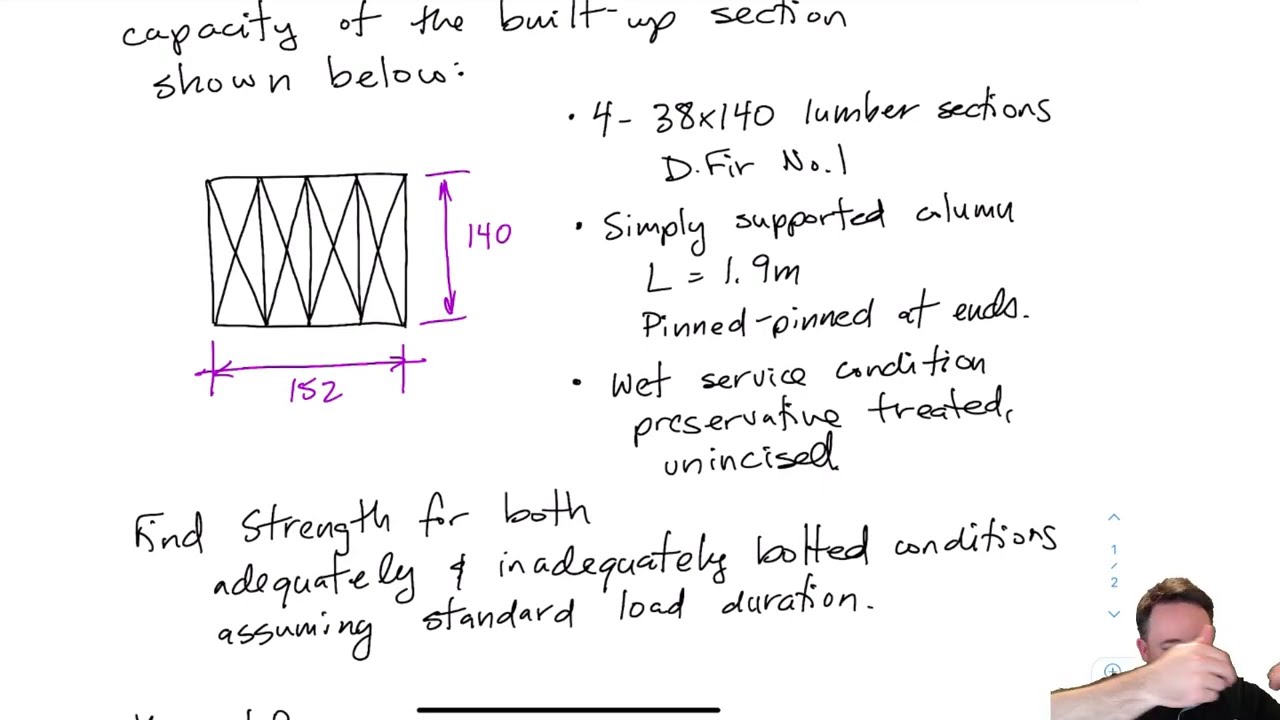 capacity of the built-up section
shown below:
• 4- 38x140 lumber sections
D.Fir No.1
140
152
• Simply supported column
L = 1.9m
Pinned-pinned at ends.
• Wet service condition
preservative treated,
unincised.
Find Strength for both
adequately & inadequately bolted conditions
assuming standard load duration.
1
/
2